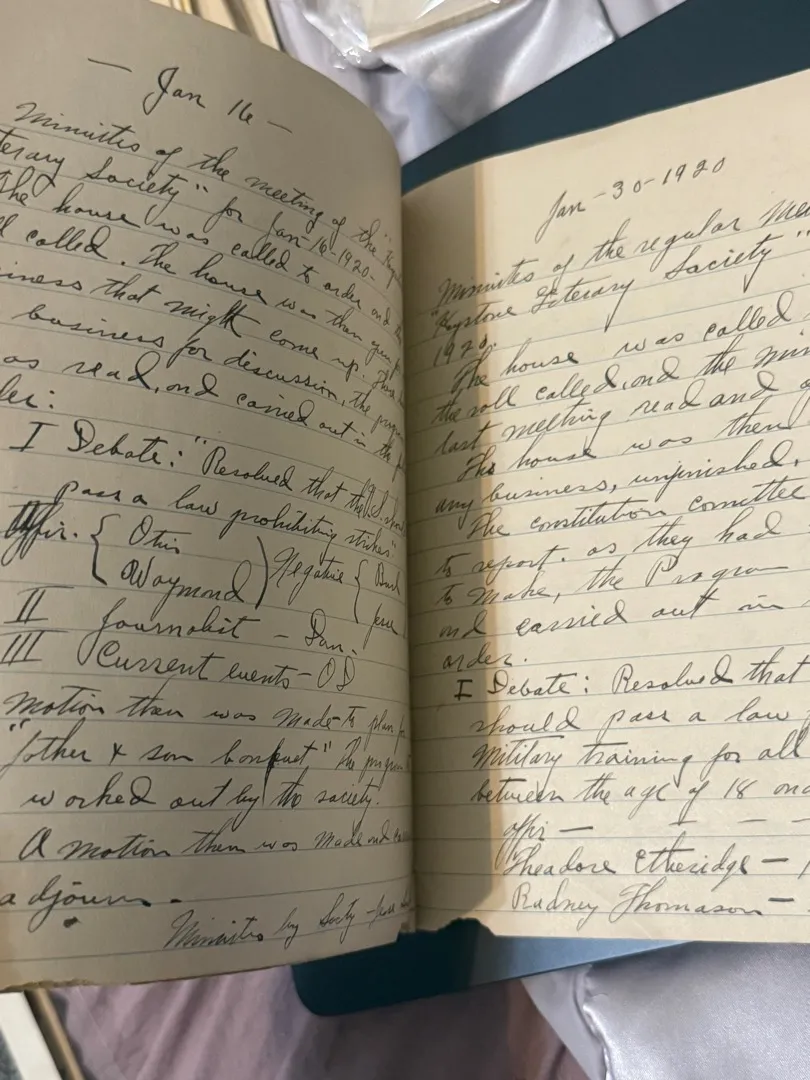 — Jan 16 —
Minuites of the meeting of the "
terary Society" for Jan-16-1920-
The house was called to order and the
ll called. The house was then
iness that might come up.
business for discussion, the
as read, and carried out in the
der:
I Debate: "Resolved that the U.S.
pass a law prohibiting strikes"
Affir. { Otis
Waymond ) Negative {
II Journalist – Dan.
III Current events – OD
motion then was made to plan
"father & son banquet" The
worked out by the society.
A motion then was made and
adjourn.
Minuites by Secty –
Jan-30-1920
Minuites of the regular
"Keystone Literary Society"
1920.
The house was called
the roll called, and the
last meeting read and
The house was then
any business, unfinished,
The constitution comittee
to report. as they had
to make, the Program
and carried out in
order.
I Debate: Resolved that
should pass a law
Military training for all
between the age of 18 and
affir — — — —
Theadore Etheridge —
Rudney Thomason —